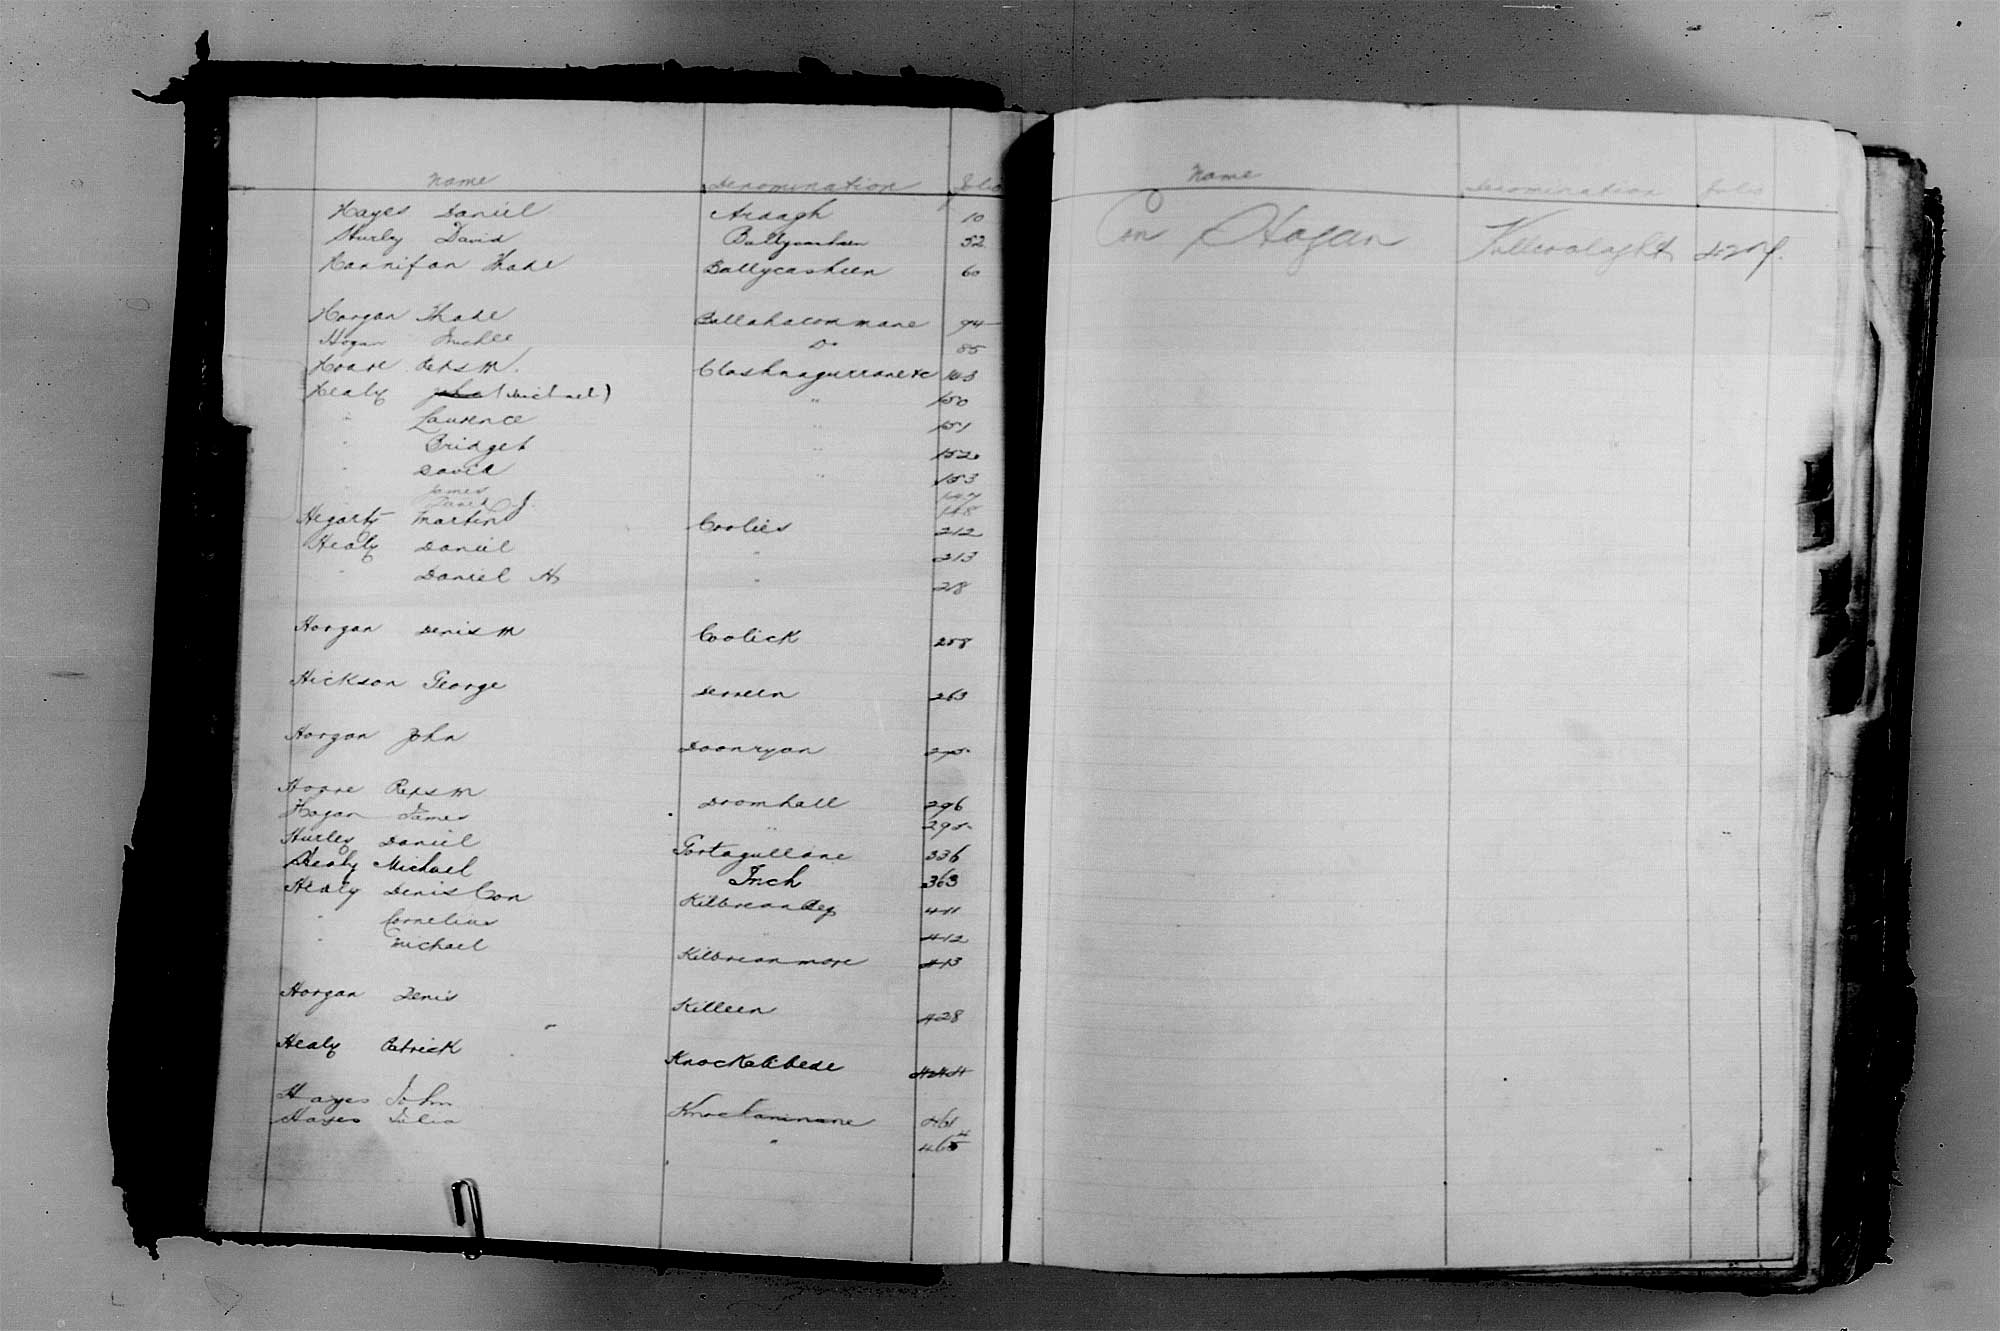 Name Denomination folio
Hayes Daniel Ardagh 10
Hurley David Ballycasheen 52
Hannifan Thade Ballycasheen 60
Horgan Thade Ballahacommane 94
Hogan Michl Do 85
Hoare Reps M. Clashnagurrane &c 103
Healy John (Michael) " 150
" Laurence " 151
" Bridget " 152
" David " 153
James 147
David J. 148
Hegarty Martin Coolies 212
Healy Daniel " 213
" Daniel H "
Horgan Denis M Coolick 258
Hickson George Derreen 263
Horgan John Doonryan
Hoare Reps M Dromhall 296
Hogan James " 295
Hurley Daniel Gortagullane 336
Healy Michael Inch 363
Healy Denis Con Kilbreanbeg 411
" Cornelius " 412
" Michael Kilbreanmore 413
Horgan Denis Killeen 428
Healy Patrick Knockalibede 444
Hayes John Knockaninane 461
Hayes Delia " 465 4
Name Denomination folio
Con O Hogan